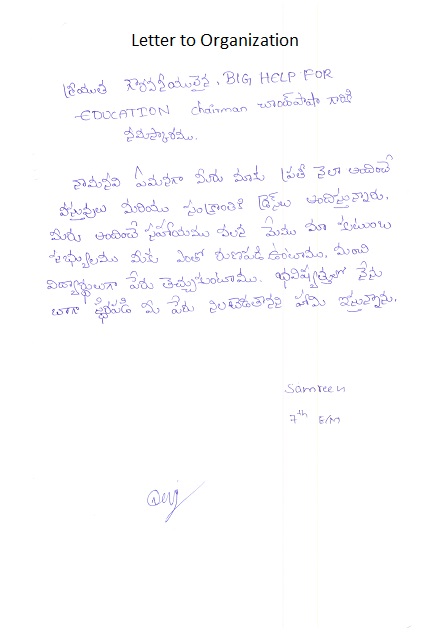 Letter to Organization
శ్రీయుత గౌరవనీయులైన, BIG HELP FOR
EDUCATION chairman చాంద్‌పాషా గారికి
నమస్కారము.
నామనవి ఏమనగా మీరు మాకు ప్రతి నెలా అందించే
వస్తువులు మరియు సంక్రాంతికి డ్రెస్‌లు అందిస్తున్నారు.
మీరు అందించే సహాయము వలన మేము మా కుటుంబ
సభ్యులము మీకు ఎంతో రుణపడి ఉంటాము. మంచి
విద్యార్థులుగా పేరు తెచ్చుకుంటాము. భవిష్యత్తులో నేను
బాగా స్థిరపడి మీ పేరు నిలబెడతానని హామి ఇస్తున్నాను.
Samreen
7th E/M